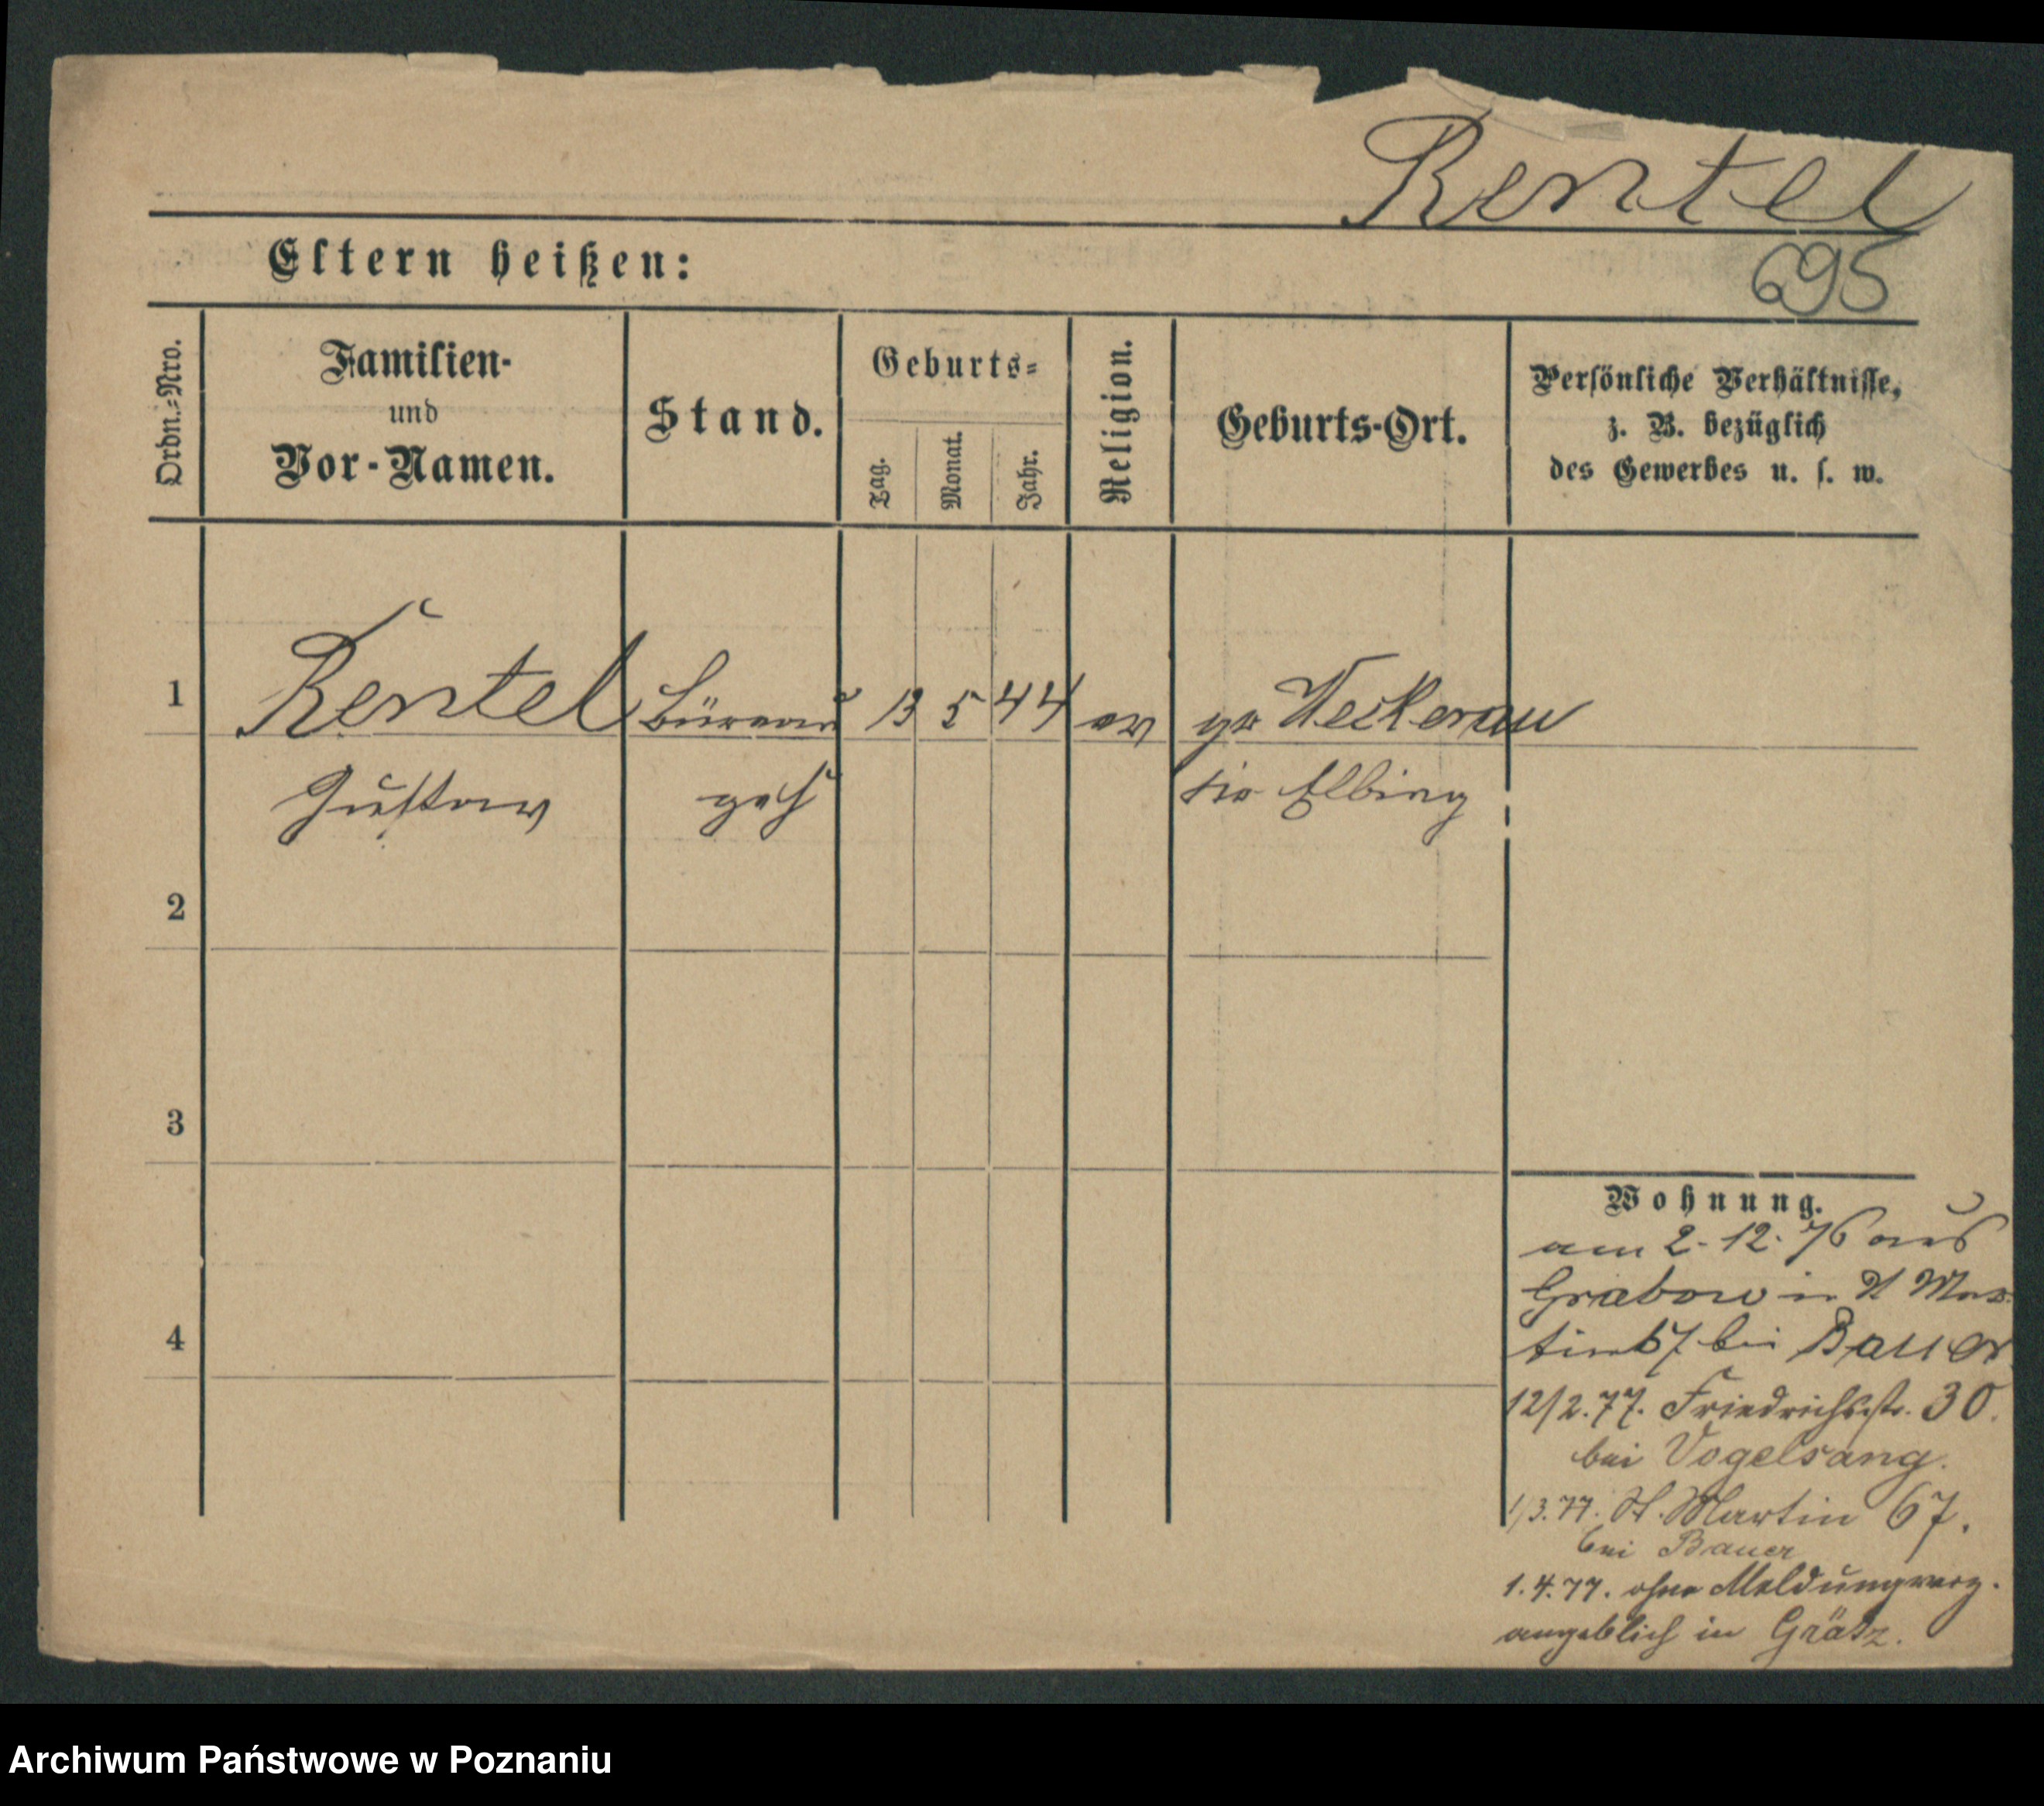 Rentel
Eltern heißen:
695
Ordn.-Nro.
Familien-
und
Vor-Namen.
Stand.
Geburts-
Tag.
Monat.
Jahr.
Religion.
Geburts-Ort.
Persönliche Verhältnisse,
z. B. bezüglich
des Gewerbes u. s. w.
1
Rentel Büreau 13 5 44 ev gr
Gustav geh Elbing
2
3
4
Wohnung.
am 2.12.76 aus
Grabow in St Mar
tin 67 bei Bauer
12/2.77. Friedrichsstr. 30.
bei Vogelsang.
1/3.77. St. Martin 67.
bei Bauer
1.4.77. ohne Meldung verz.
angeblich in Grätz.
Archiwum Państwowe w Poznaniu